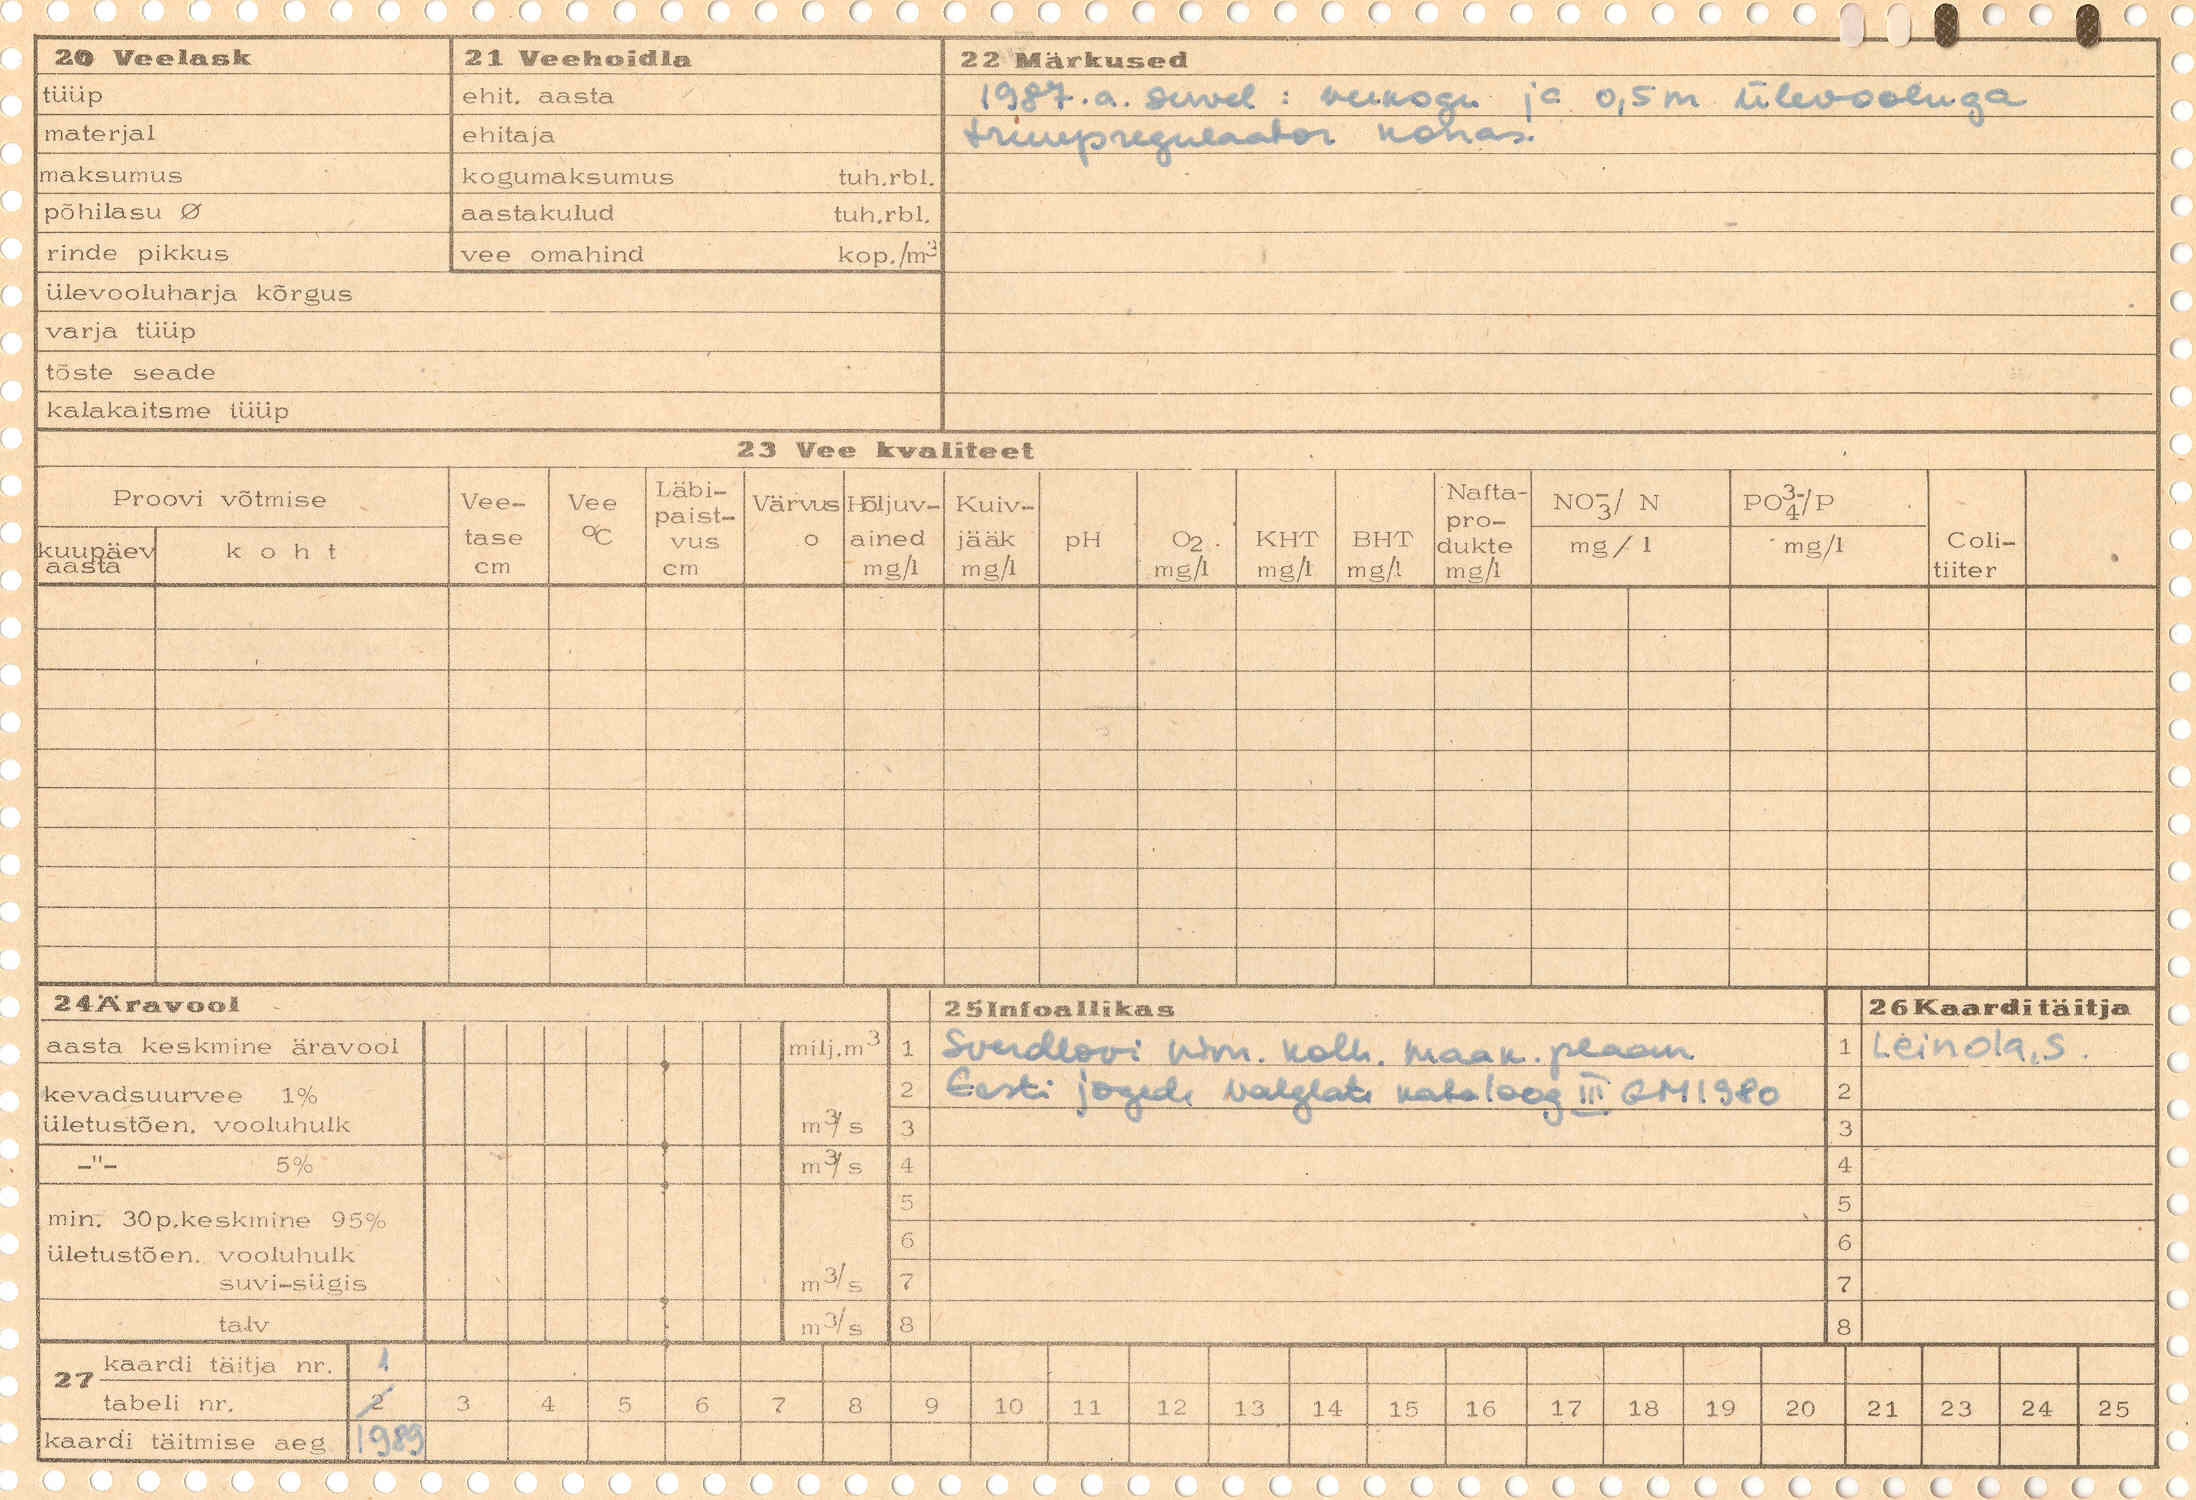 20 Veelask
tüüp
materjal
maksumus
põhilasu Ø
rinde pikkus
ülevooluharja kõrgus
varja tüüp
tõste seade
kalakaitsme tüüp
21 Veehoidla
ehit. aasta
ehitaja
kogumaksumus tuh.rbl.
aastakulud tuh.rbl.
vee omahind kop./m³
22 Märkused
1987.a. suvel : veekogu ja 0,5m ülevooluga
truupregulaator korras.
23 Vee kvaliteet
Proovi võtmise
kuupäev aasta
koht
Vee-
tase
cm
Vee
°C
Läbi-
paist-
vus
cm
Värvus
o
Hõljuv-
ained
mg/l
Kuiv-
jääk
mg/l
pH
O2
mg/l
KHT
mg/l
BHT
mg/l
Nafta-
pro-
dukte
mg/l
NO3⁻/ N
mg/l
PO4³⁻/P
mg/l
Coli-
tiiter
24 Äravool
aasta keskmine äravool milj.m³
kevadsuurvee 1%
ületustõen. vooluhulk m³/s
-"- 5% m³/s
min. 30p.keskmine 95%
ületustõen. vooluhulk
suvi-sügis m³/s
talv m³/s
25 Infoallikas
1 Sverdlovi nim. kolh. maak. plaan
2 Eesti jõgede valglate kataloog III EM 1980
3
4
5
6
7
8
26 Kaarditäitja
1 Leinola, S.
2
3
4
5
6
7
8
27 kaardi täitja nr. 1
tabeli nr. 2 3 4 5 6 7 8 9 10 11 12 13 14 15 16 17 18 19 20 21 23 24 25
kaardi täitmise aeg 1989